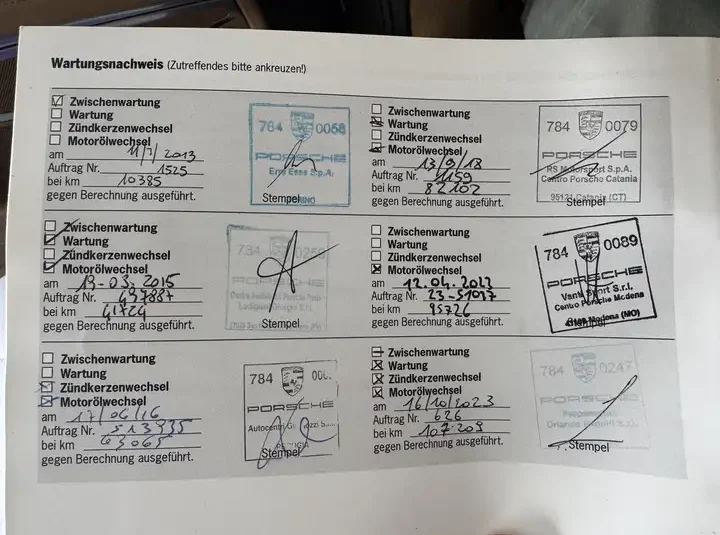 Wartungsnachweis (Zutreffendes bitte ankreuzen!)
Zwischenwartung
Wartung
Zündkerzenwechsel
Motorölwechsel
am 11/7/2013
Auftrag Nr. 1525
bei km 10385
gegen Berechnung ausgeführt.
784 0058
PORSCHE
S.p.A.
Stempel
Zwischenwartung
Wartung
Zündkerzenwechsel
Motorölwechsel
am 19-03-2015
Auftrag Nr.
bei km 41724
gegen Berechnung ausgeführt.
784 0258
PORSCHE
Stempel
Zwischenwartung
Wartung
Zündkerzenwechsel
Motorölwechsel
am 17/06/16
Auftrag Nr. 513935
bei km 63065
gegen Berechnung ausgeführt.
784
PORSCHE
Autocentri
Stempel
Zwischenwartung
Wartung
Zündkerzenwechsel
Motorölwechsel
am 13/9/18
Auftrag Nr. 1159
bei km 82102
gegen Berechnung ausgeführt.
784 0079
PORSCHE
RS Motorsport S.p.A.
Centro Porsche Catania
95121 Catania (CT)
Stempel
Zwischenwartung
Wartung
Zündkerzenwechsel
Motorölwechsel
am 12.04.2023
Auftrag Nr. 23-51037
bei km 95726
gegen Berechnung ausgeführt.
784 0089
PORSCHE
Sport S.r.l.
Centro Porsche Modena
Modena (MO)
Stempel
Zwischenwartung
Wartung
Zündkerzenwechsel
Motorölwechsel
am 16/10/2023
Auftrag Nr. 626
bei km 107.209
gegen Berechnung ausgeführt.
784 0247
PORSCHE
Stempel